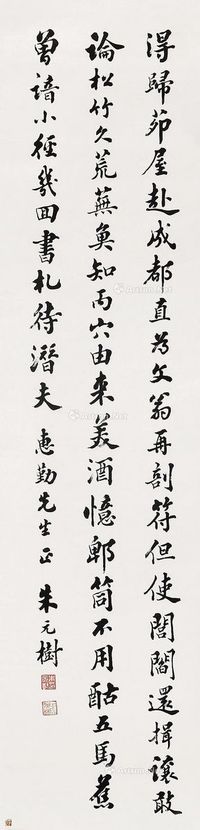 得歸茆屋赴成都直為文翁再剖符但使閭閻還揖讓敢
論松竹久荒蕪魚知丙穴由來美酒憶郫筒不用酤五馬舊
曾諳小徑幾回書札待潛夫 惠勤先生正 朱元樹